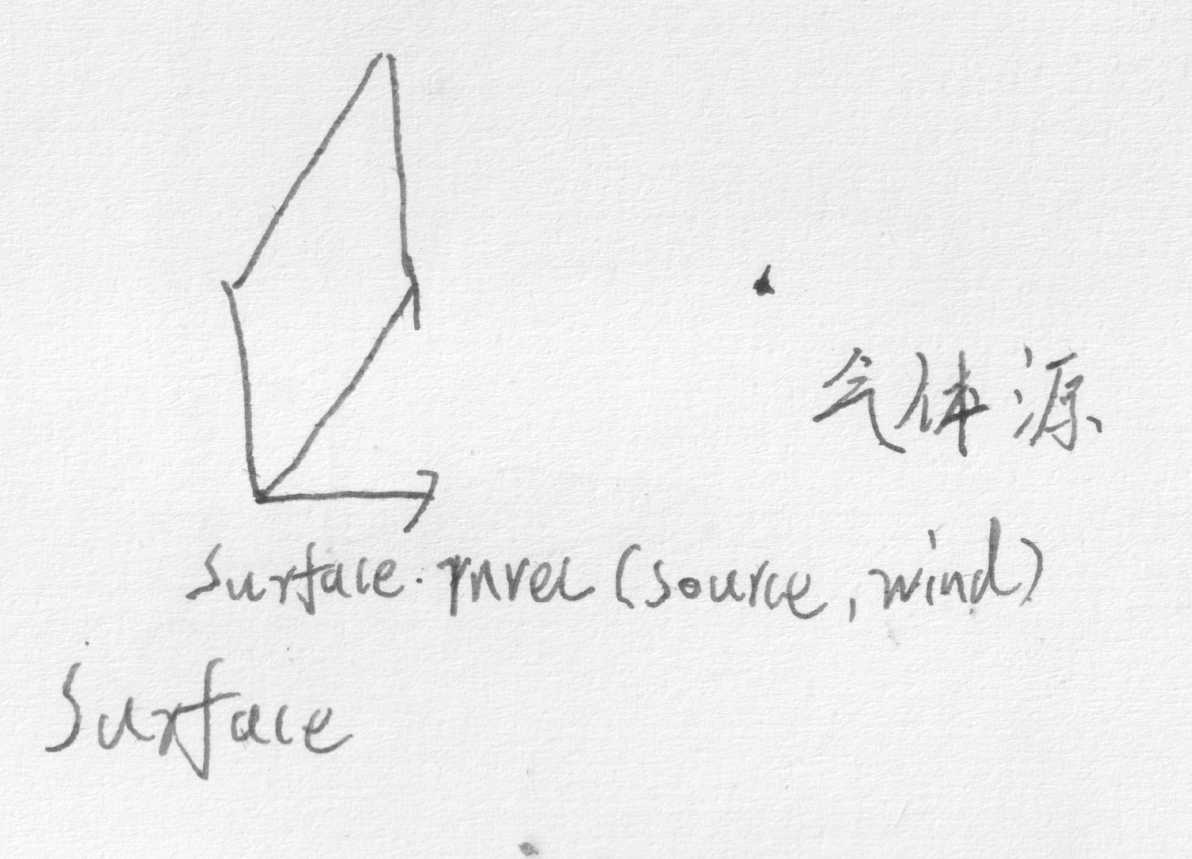 气体源
Surface. (source, wind)
Surface